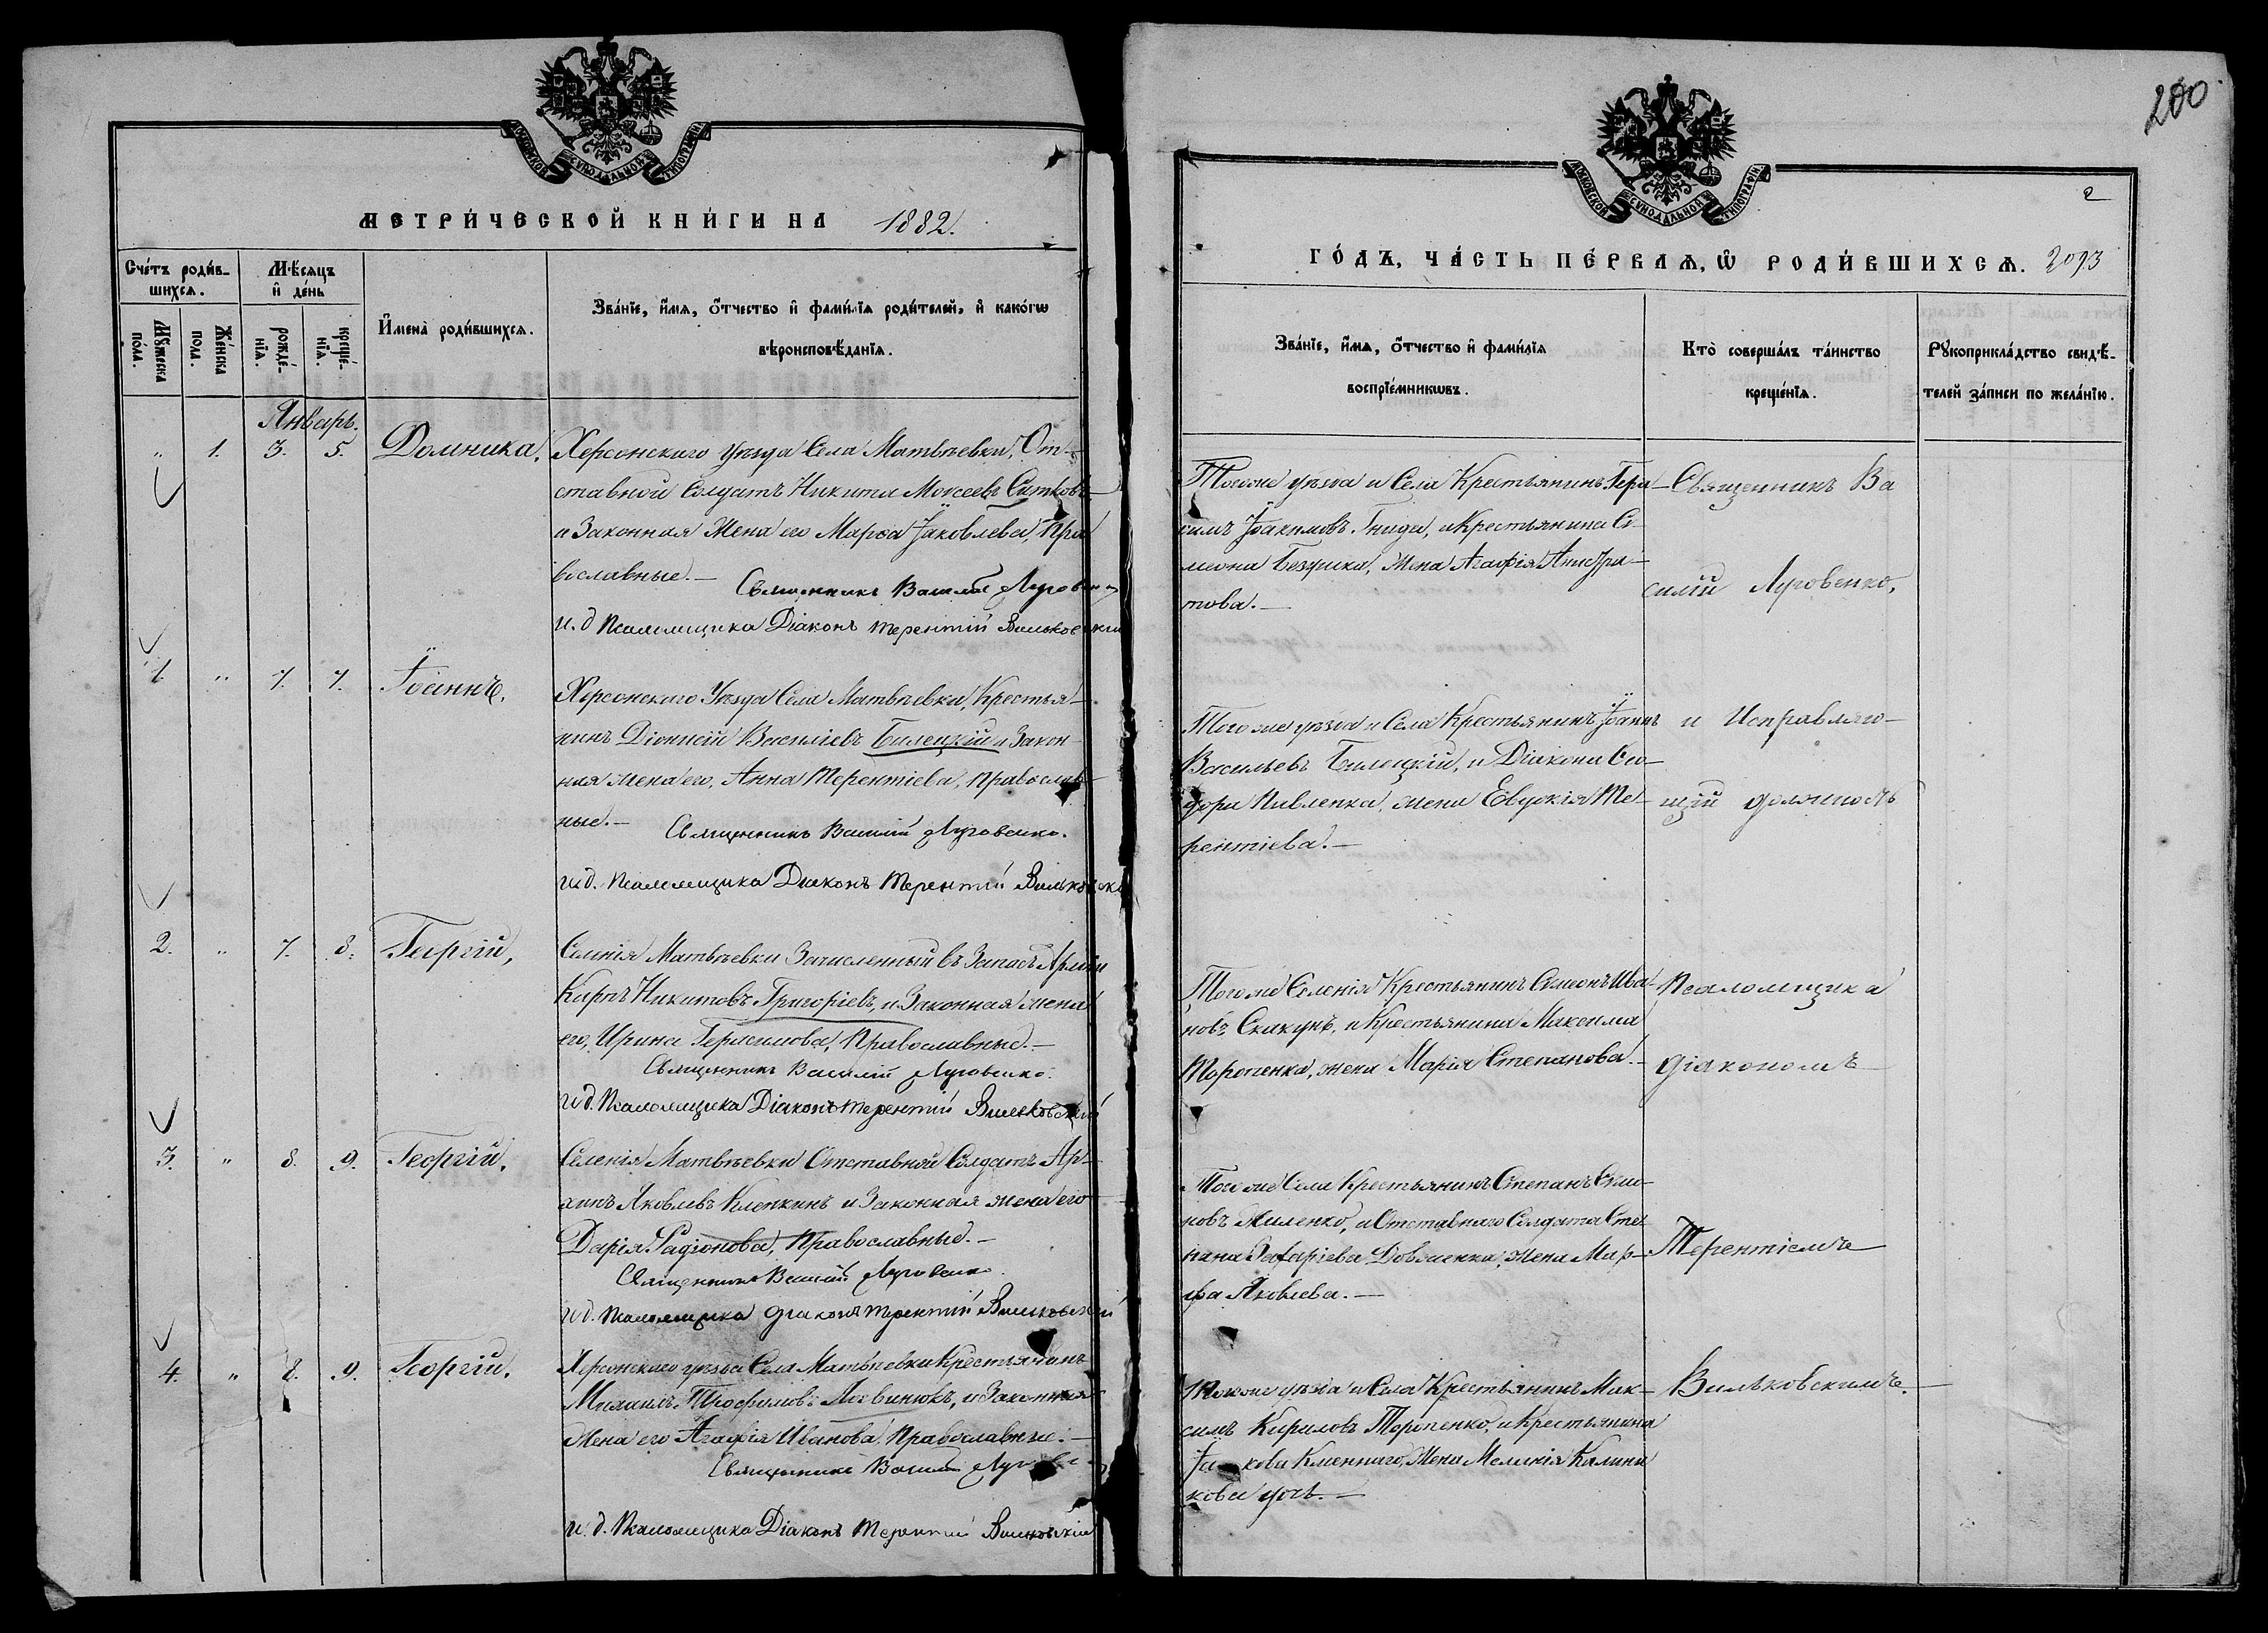 МОСКОВСКОЙ СУНОДАЛЬНОЙ ТИПОГРАФІИ
МЕТРИ́ЧЕСКОЙ КНИ́ГИ НА 1882.
Сче́тъ роди́в-
шихсѧ.
Мѣ́сяцъ
и҆ де́нь
Мꙋ́жеска
по́ла.
Же́нска
пола.
рожде́-
нїѧ.
креще́-
нїѧ.
И҆мена̀ роди́вшихсѧ.
Зва́нїе, и҆́мѧ, о҆́тчество и҆ фами́лїѧ роди́телей, и҆ како́гѡ
вѣроисповѣ́данїѧ.
Январь.
" 1. 3. 5. Домника,
Херсонскаго уѣзда Села Матвѣевки, От-
ставной Солдатъ Никита Моисеевъ Ситковъ
и Законная Жена его Марѳа Іаковлева, Пра
вославные.—
Священникъ Василій Луговенко
И. д Псаломщика Діаконъ Терентій Вильковскій
1. " 7. 7. Іоаннъ,
Херсонскаго Уѣзда Села Матвѣевки, Крестья-
нинъ Діонисій Василіевъ Билецкій и Закон-
ная жена его, Анна Терентіева, Православ-
ные.—
Священникъ Василій Луговенко.
И.д. Псаломщика Діаконъ Терентій Вильковскі
2. " 7. 8. Георгій,
Селенія Матвѣевки Зачисленный въ Запасъ Арміи
Карпъ Никитовъ Григоріевъ, и Законная жена
его, Ирина Герасимова, Православные.—
Священникъ Василій Луговенко.
И.д. Псаломщика Діаконъ Терентій Вильковскій
3. " 8. 9. Георгій,
Селенія Матвѣевки Отставной Солдатъ Ар-
хипъ Яковлевъ Клепкинъ и Законная жена его
Дарія Радіонова, Православные.—
Священникъ Василій Луговенко.
И.д. Псаломщика Діаконъ Терентій Вильковскій
4. " 8. 9. Георгій,
Херсонскаго уѣзда Села Матвѣевки Крестьянинъ
Михаилъ Трофимовъ Литвинюкъ, и Законная
Жена его Агафія Иванова, Православные.—
Священникъ Василій Лугове
И. д. Псаломщика Діаконъ Терентій Вильковскій
200
2
МОСКОВСКОЙ СУНОДАЛЬНОЙ ТИПОГРАФІИ
ГО́ДЪ, ЧА́СТЬ ПЕ́РВАѦ, Ѡ҆ РОДИ́ВШИХСѦ. 2093
Зва́нїе, и҆́мѧ, о҆́тчество и҆ фами́лїѧ
воспрїе́мникѡвъ.
Кто̀ соверша́лъ та́инство
креще́нїѧ.
Рꙋкоприкла́дство свидѣ́-
телей за́писи по жела́нїю.
Тогоже уѣзда и Села Крестьянинъ Гера-
симъ Іоакимовъ Гнида, и Крестьянина Си-
меона Безрука, Жена Агафія
това.—
Священникъ Ва
силій Луговенко,
Того же уѣзда и Села Крестьянинъ Іоаннъ
Васильевъ Билецкій, и Діакона Си-
дора Павленка, жена Евдокія Те-
рентіева.—
и Исправляю-
щій должность
Тогоже Селенія Крестьянинъ Симеонъ Ива-
новъ Скакунъ, и Крестьянина Максима
Торопенка, жена Марія Степанова.—
Псаломщика
Діакономъ
Того же Села Крестьянинъ Степанъ Симо-
новъ Миленко, и Отставнаго Солдата Сте-
пана Захаріева Довженка, Жена Мар-
фа Яковлева.—
Терентіемъ
Тогоже уѣзда и Села Крестьянинъ Мак-
симъ Кириловъ Торопенко, и Крестьянина
Іакова Кменнаго, Жена Меланія Калини
кова дочь.—
Вильковскимъ.